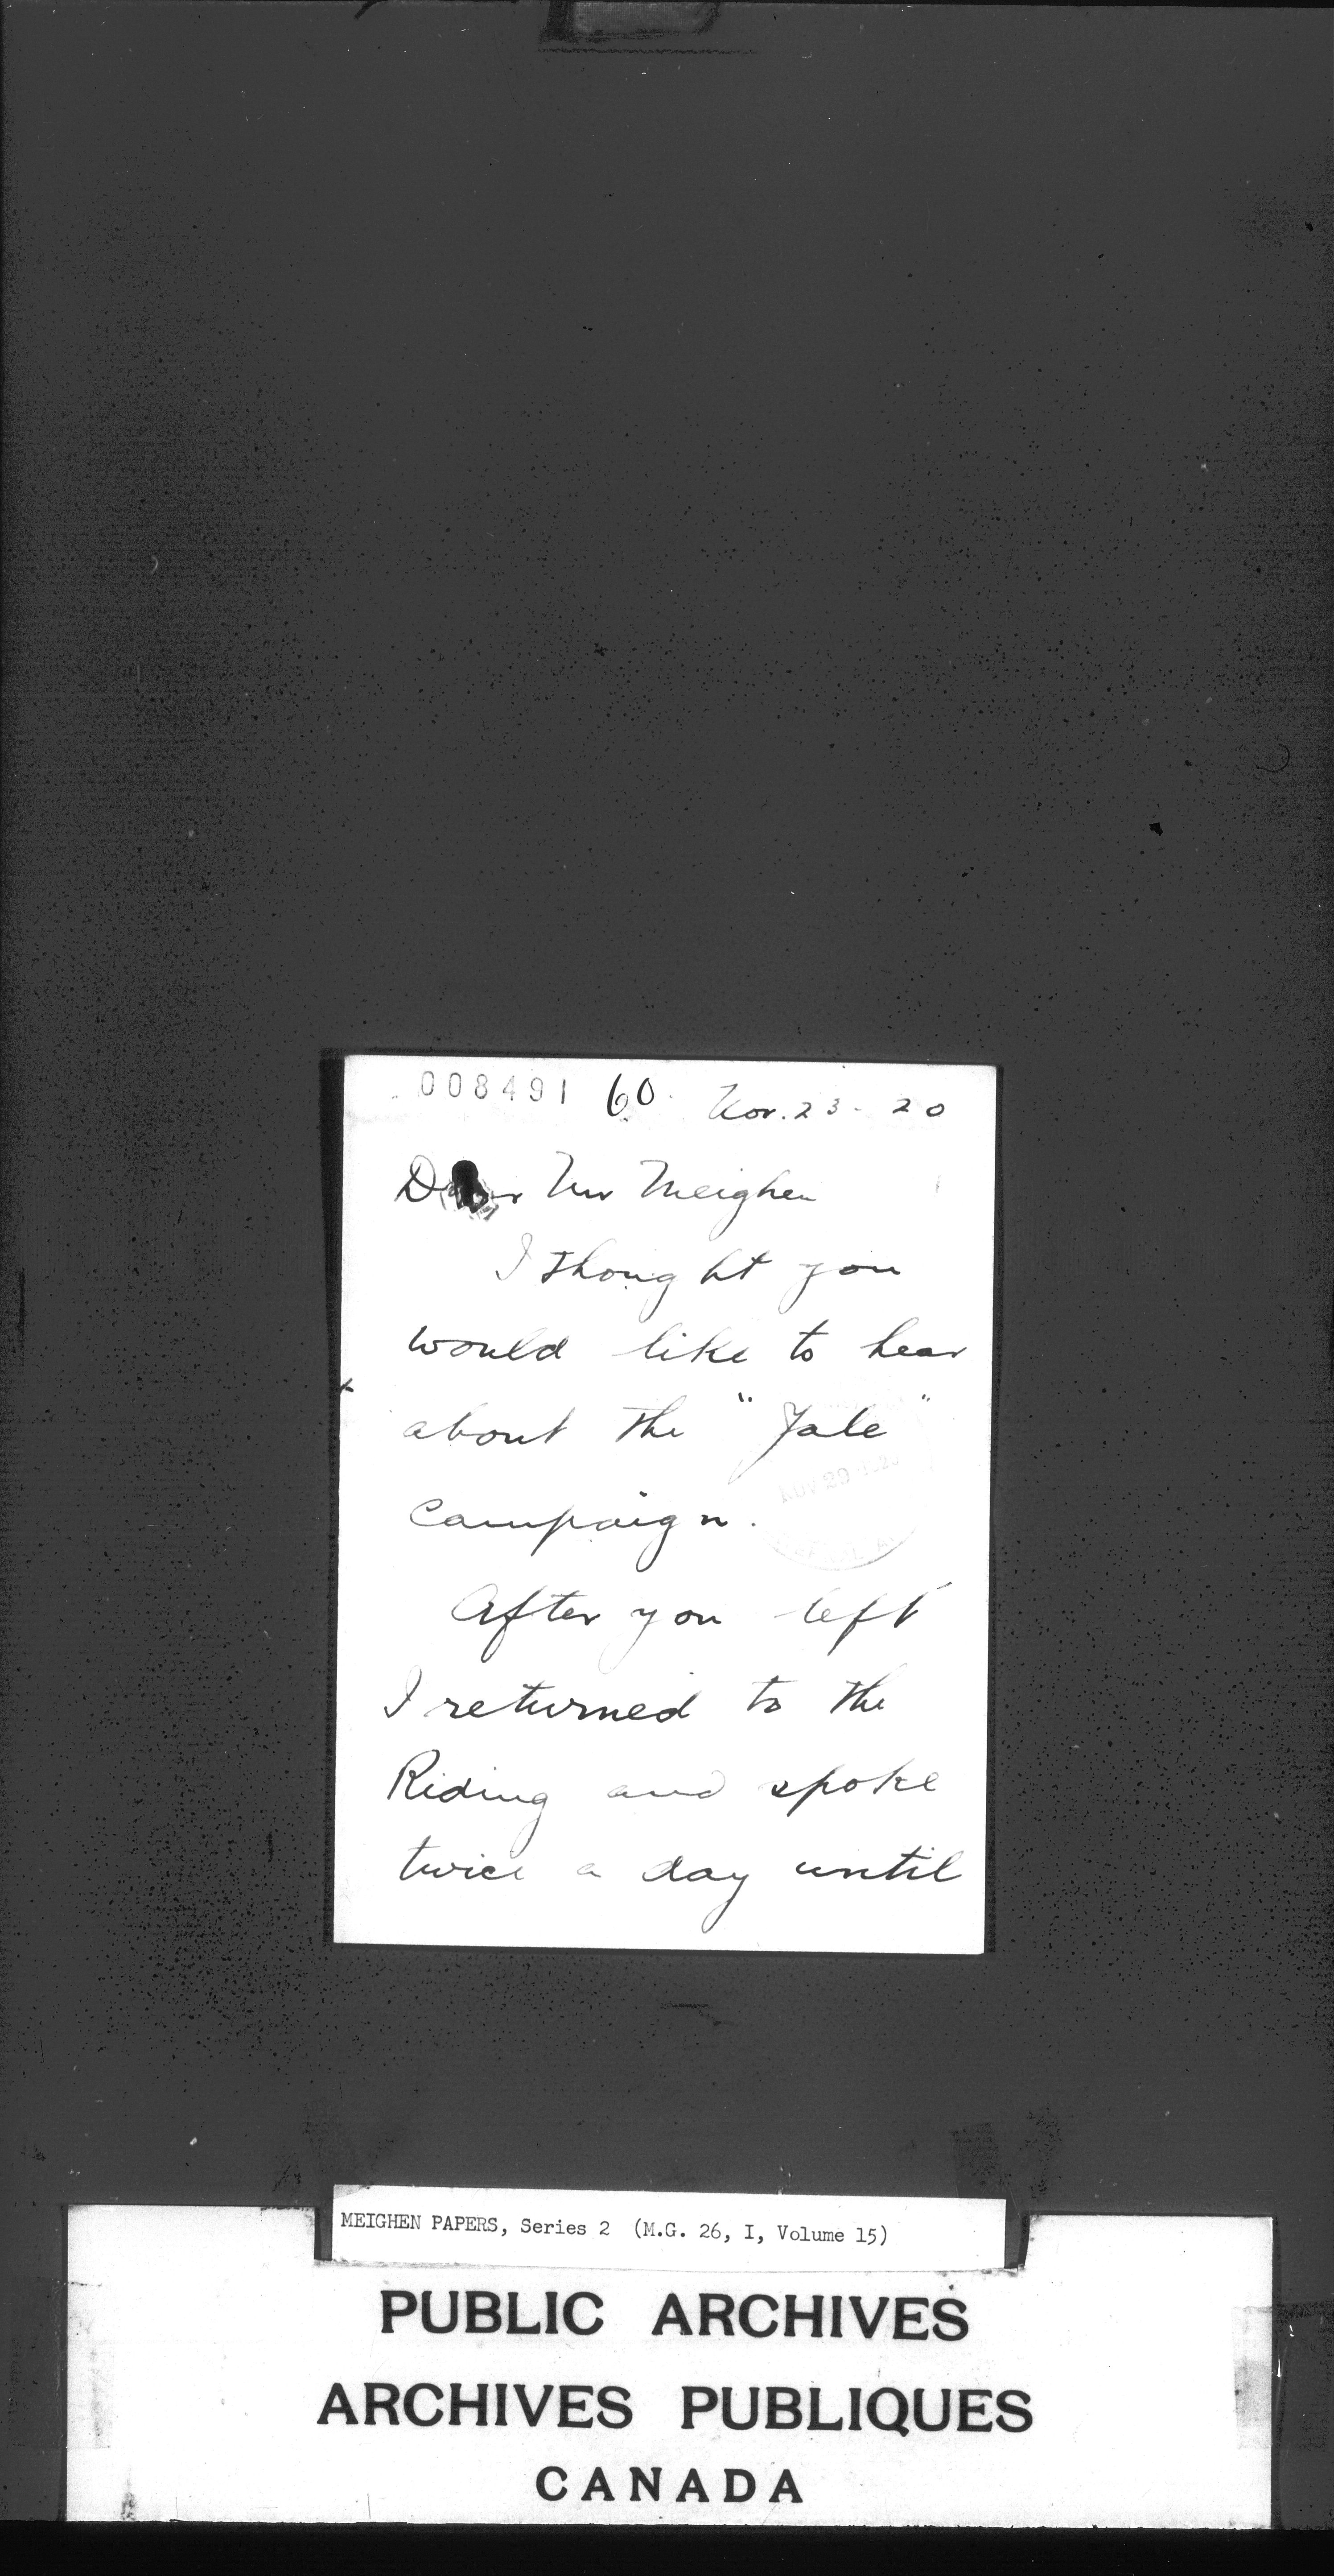 008491 60. Nov. 23 - 20
Dear Mr Meighen
I thought you
would like to hear
about the "Yale"
Campaign.
NOV 29 1920
After you left
I returned to the
Riding and spoke
twice a day until
MEIGHEN PAPERS, Series 2 (M.G. 26, I, Volume 15)
PUBLIC ARCHIVES
ARCHIVES PUBLIQUES
CANADA